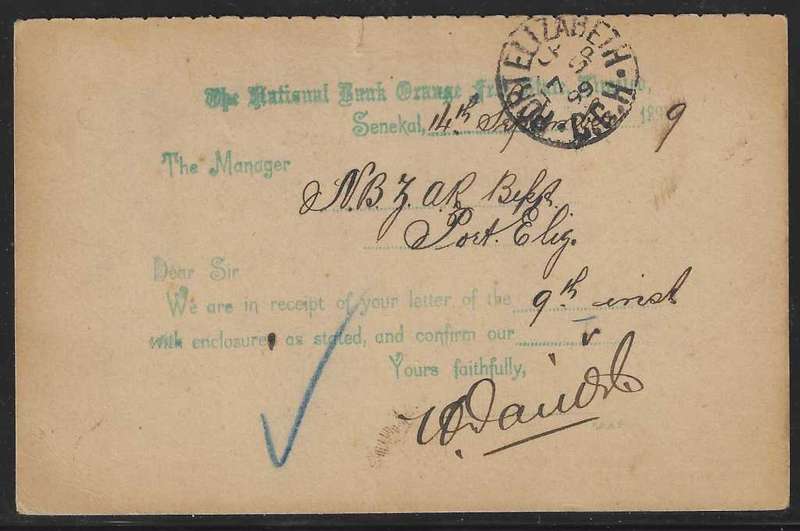 The National Bank Orange Free State, Limited,
Senekal, 14th September 1899
PORT ELIZABETH
SP
99
The Manager
N.B.Z.A.R. Bepk
Port. Eliz.
Dear Sir
We are in receipt of your letter of the 9th inst
with enclosures as stated, and confirm our
Yours faithfully,